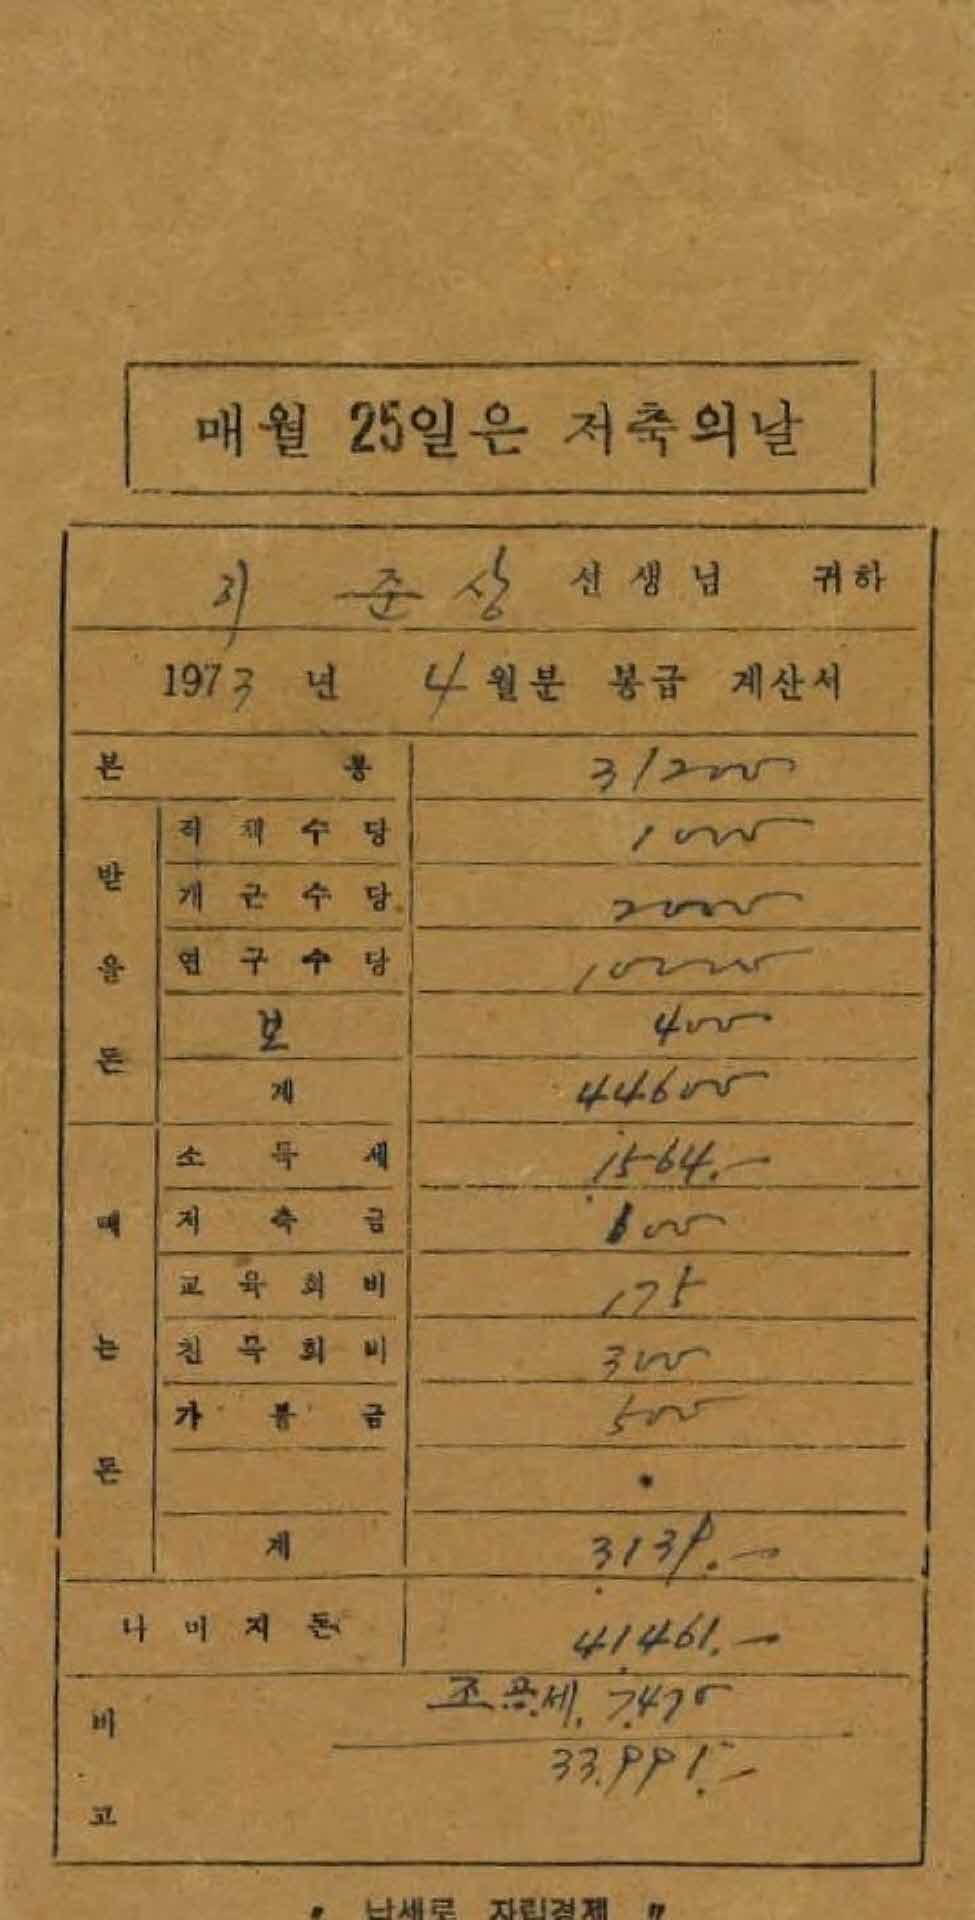 매월 25일은 저축의날
준상 선생님 귀하
1973 년 4월분 봉급 계산서
본 봉 31200
받을돈
직책수당 1000
개근수당 2000
연구수당 10000
보 400
계 44600
떼는돈
소득세 1564.-
저축금 600
교육회비 175
친목회비 300
가불금 500
계 3139.-
나머지돈 41461.-
비고
7470
33.991.-
" 납세로 자립경제 "